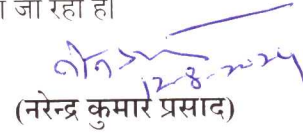 जा रहा है।
12-8-2024
(नरेन्द्र कुमार प्रसाद)